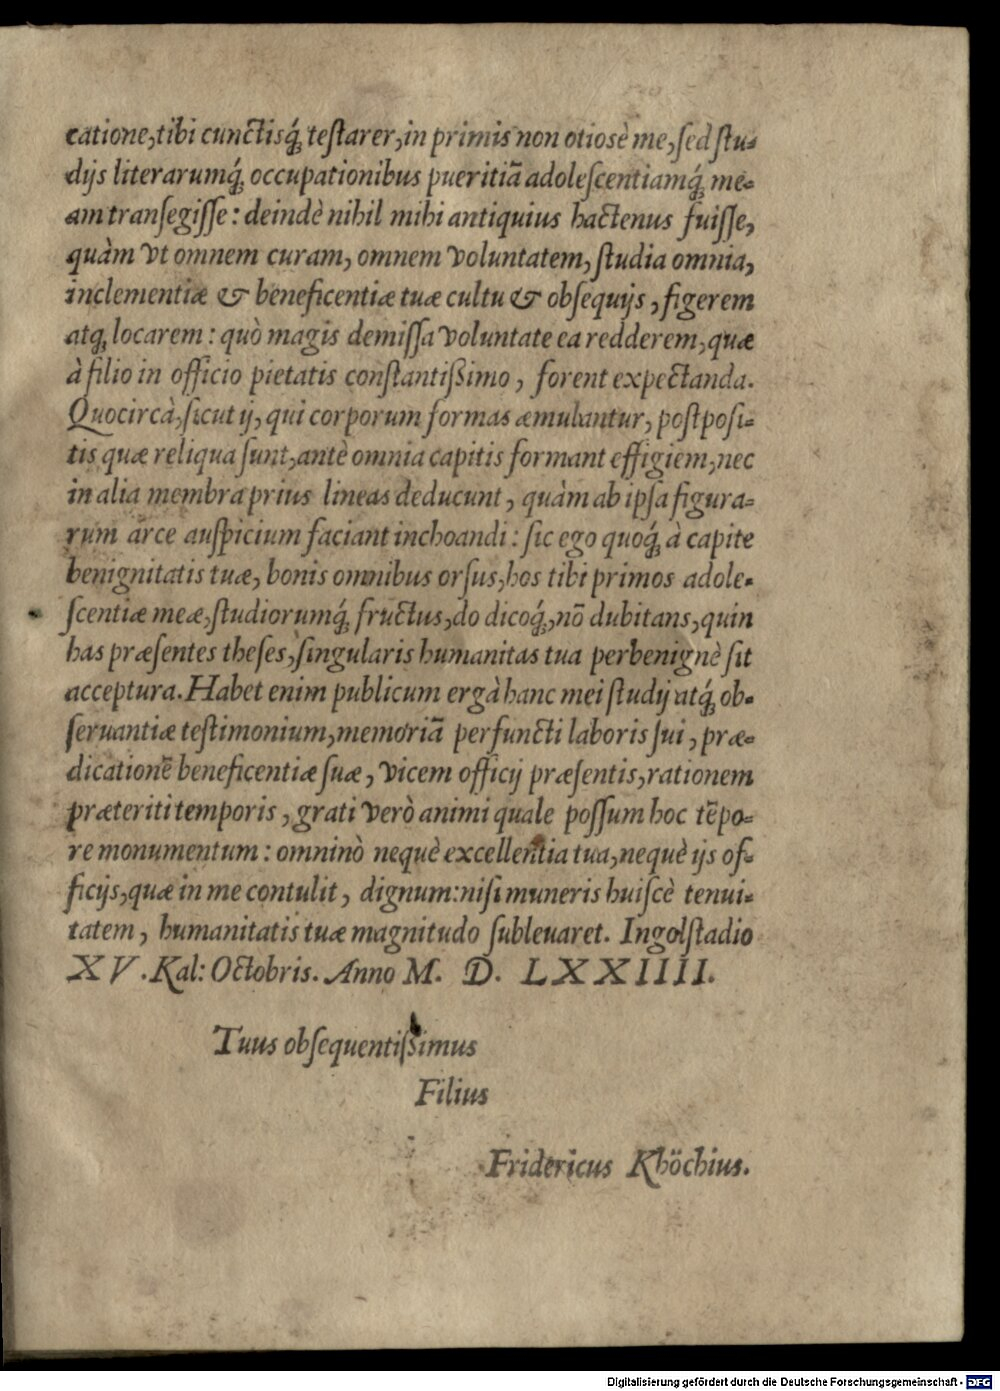 catione, tibi cunctisq́; testarer, in primis non otiosè me, sed stu-
dijs literarumq́; occupationibus pueritiã adolescentiamq́; me-
am transegisse: deindè nihil mihi antiquius hactenus fuisse,
quàm vt omnem curam, omnem voluntatem, studia omnia,
inclementiæ & beneficentiæ tuæ cultu & obsequijs, figerem
atq; locarem: quò magis demissa voluntate ea redderem, quæ
à filio in officio pietatis constantißimo, forent expectanda.
Quocircà, sicut ij, qui corporum formas æmulantur, postposi-
tis quæ reliqua sunt, antè omnia capitis formant effigiem, nec
in alia membra prius lineas deducunt, quàm ab ipsa figura-
rum arce auspicium faciant inchoandi: sic ego quoq́; à capite
benignitatis tuæ, bonis omnibus orsus, hos tibi primos adole-
scentiæ meæ, studiorumq́; fructus, do dicoq́;, nõ dubitans, quin
has præsentes theses, singularis humanitas tua perbenignè sit
acceptura. Habet enim publicum ergà hanc mei studij atq́; ob-
seruantiæ testimonium, memoriã perfuncti laboris sui, præ-
dicationẽ beneficentiæ suæ, vicem officij præsentis, rationem
præteriti temporis, grati verò animi quale possum hoc tẽpo-
re monumentum: omninò nequè excellentia tua, nequè ijs of-
ficijs, quæ in me contulit, dignum: nisi muneris huiscè tenui-
tatem, humanitatis tuæ magnitudo subleuaret. Ingolstadio
XV. Kal: Octobris. Anno M. D. LXXIIII.
Tuus obsequentißimus
Filius
Fridericus Khöchius.
Digitalisierung gefördert durch die Deutsche Forschungsgemeinschaft - DFG